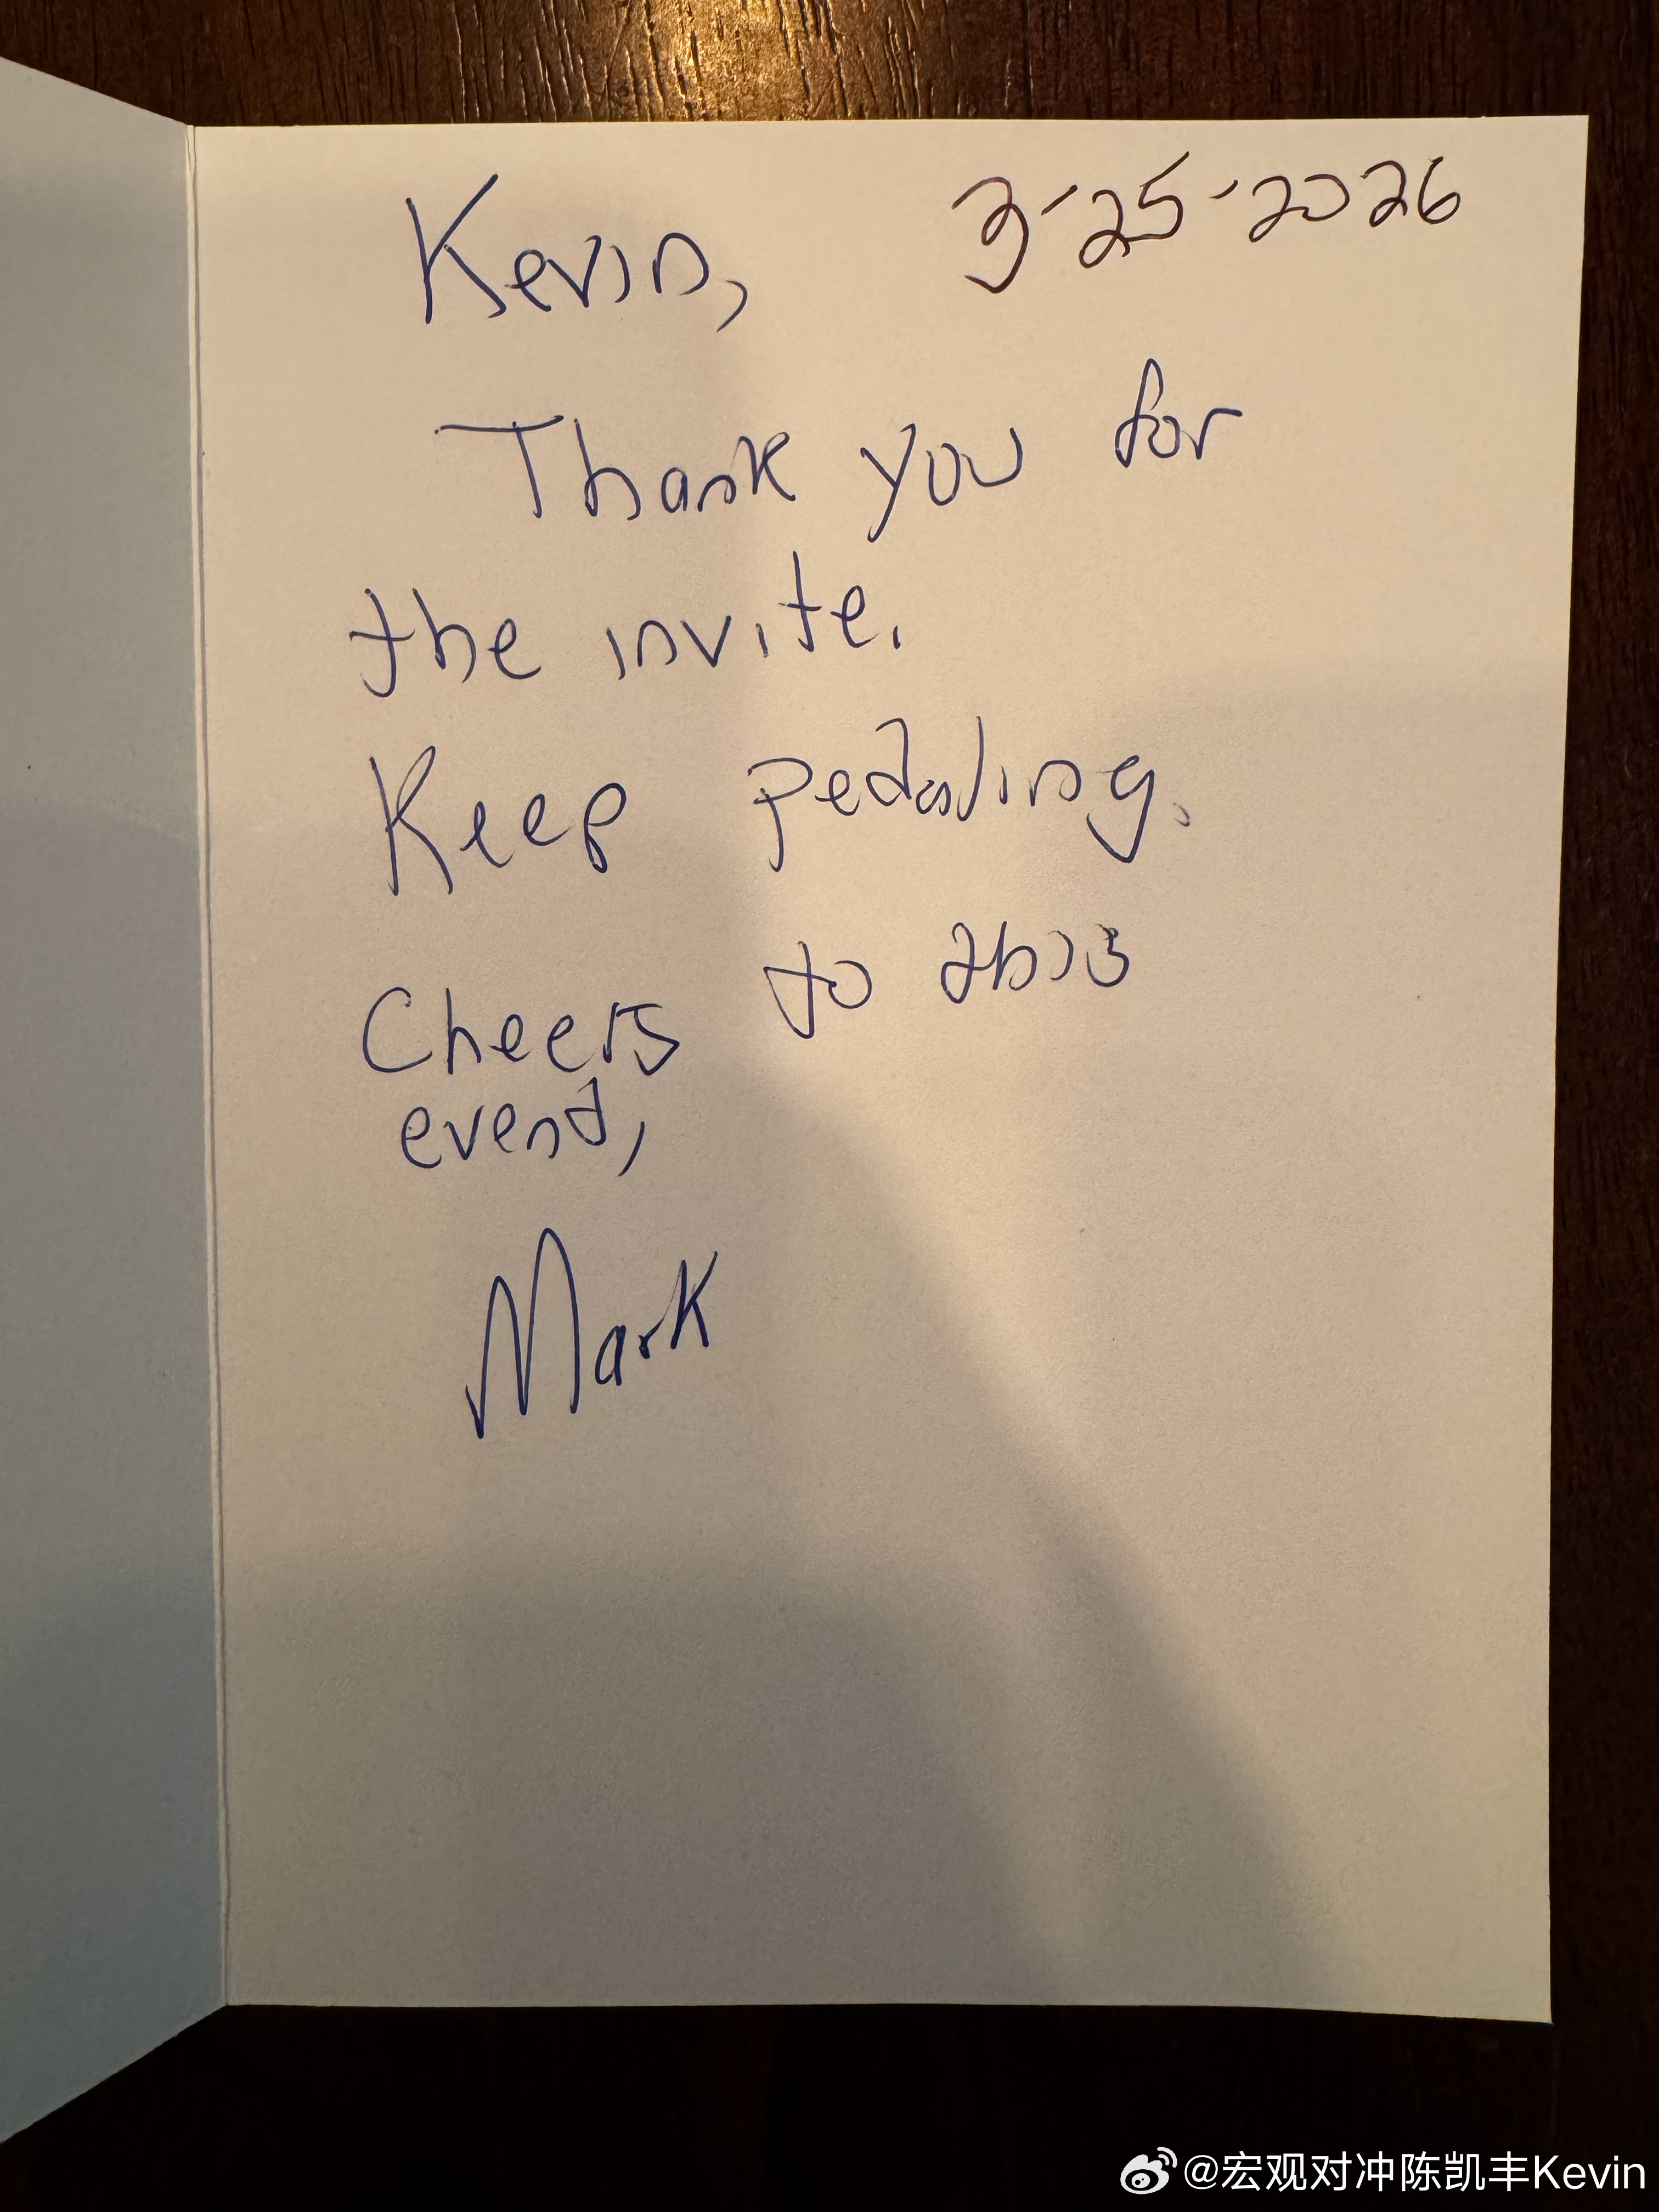 Kevin, 3-25-2026
Thank you for
the invite.
Keep pedaling.
Cheers to this
event,
Mark
@宏观对冲陈凯丰Kevin